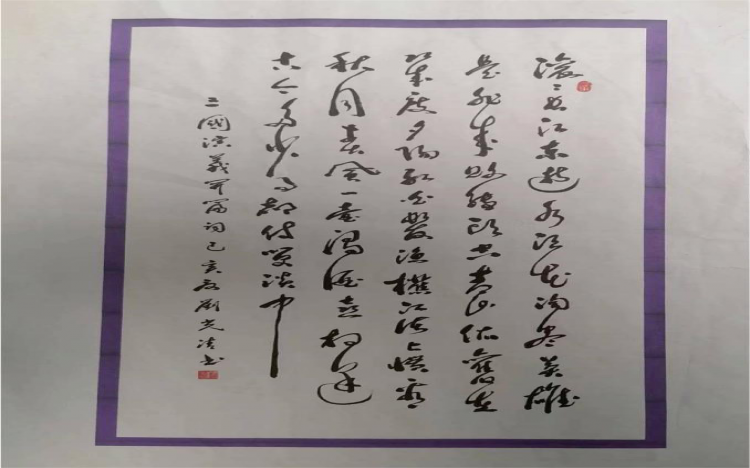 滾滾長江東逝水浪花淘盡英雄
是非成敗轉頭空青山依舊在
幾度夕陽紅白髮漁樵江渚上慣看
秋月春風一壺濁酒喜相逢
古今多少事都付笑談中
三國演義開篇詞己亥夏劉光清書